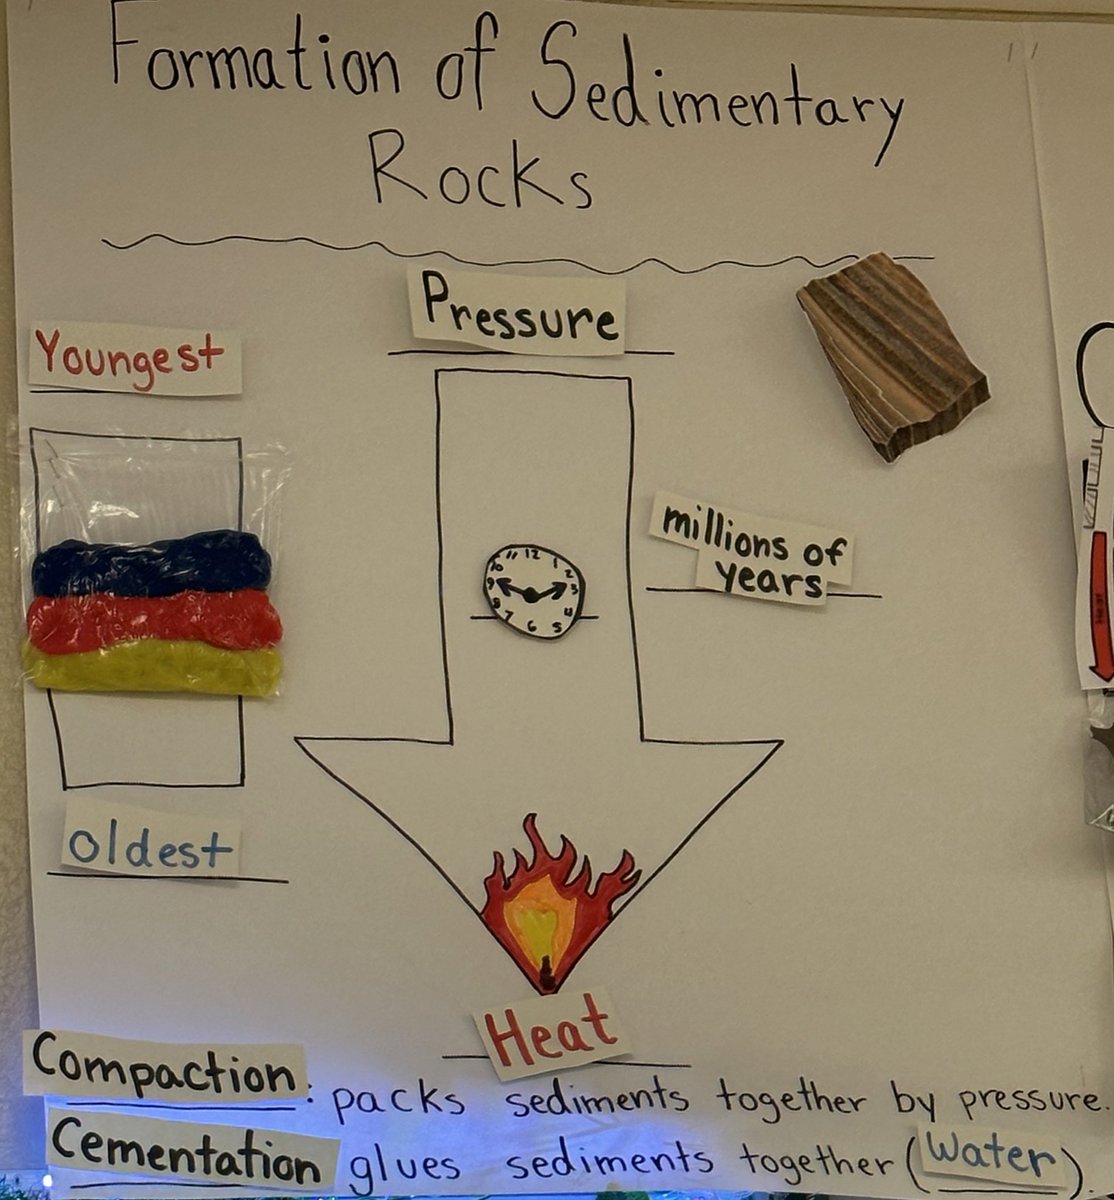 Formation of Sedimentary
Rocks
Pressure
Youngest
millions of
years
11 12 1
10 2
9 3
8 4
7 6 5
oldest
Heat
Heat
Compaction: packs sediments together by pressure.
Cementation glues sediments together (Water).